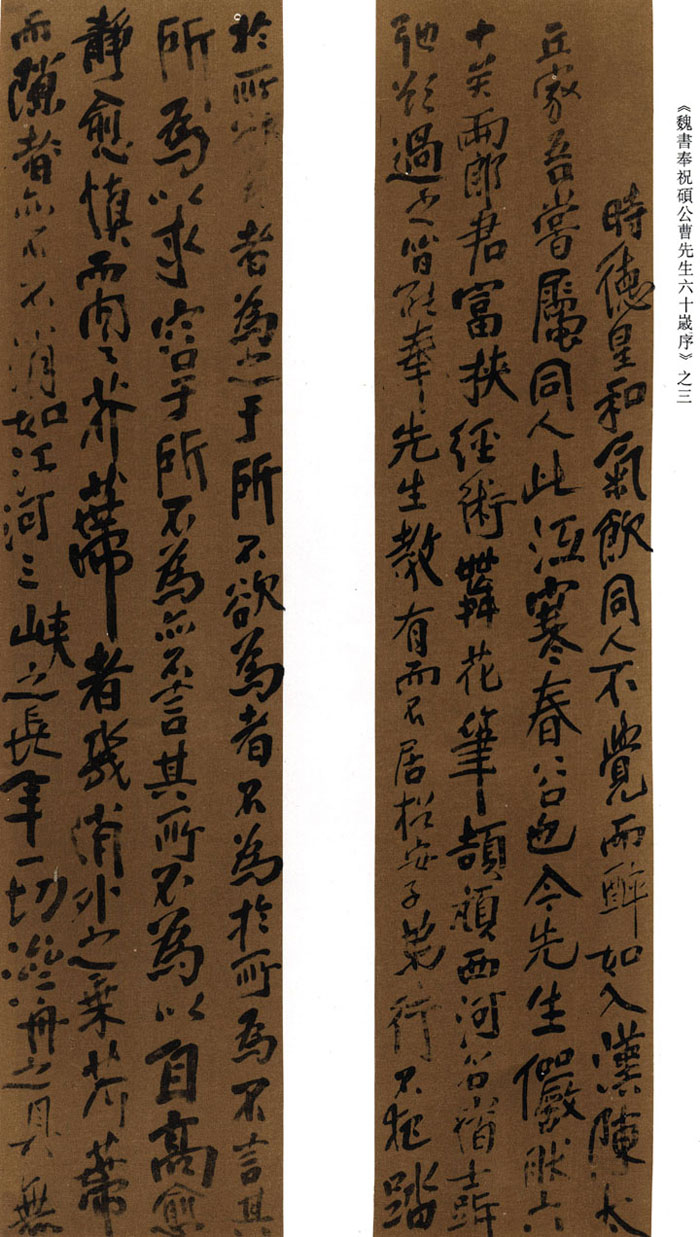 《魏書奉祝碩公曹先生六十歲序》之三
時德星和氣飲同人不覺而醉如入漢陳太
丘家吾嘗屬同人此冱寒春谷也今先生儼然六
十矣兩郎君富挾經術舞花筆頡頏西河谷
弛
過之皆能奉先生教有而不居
子弟行不犯
於所
者為之于所不欲為者不為於所為不言其
所為以求容于所不為亦不言其所不為以自高愈
靜愈慎而內之芥蔕者幾消外之乘芥蔕
而隙者亦不不消如江河三峽之長年一切
舟之具無